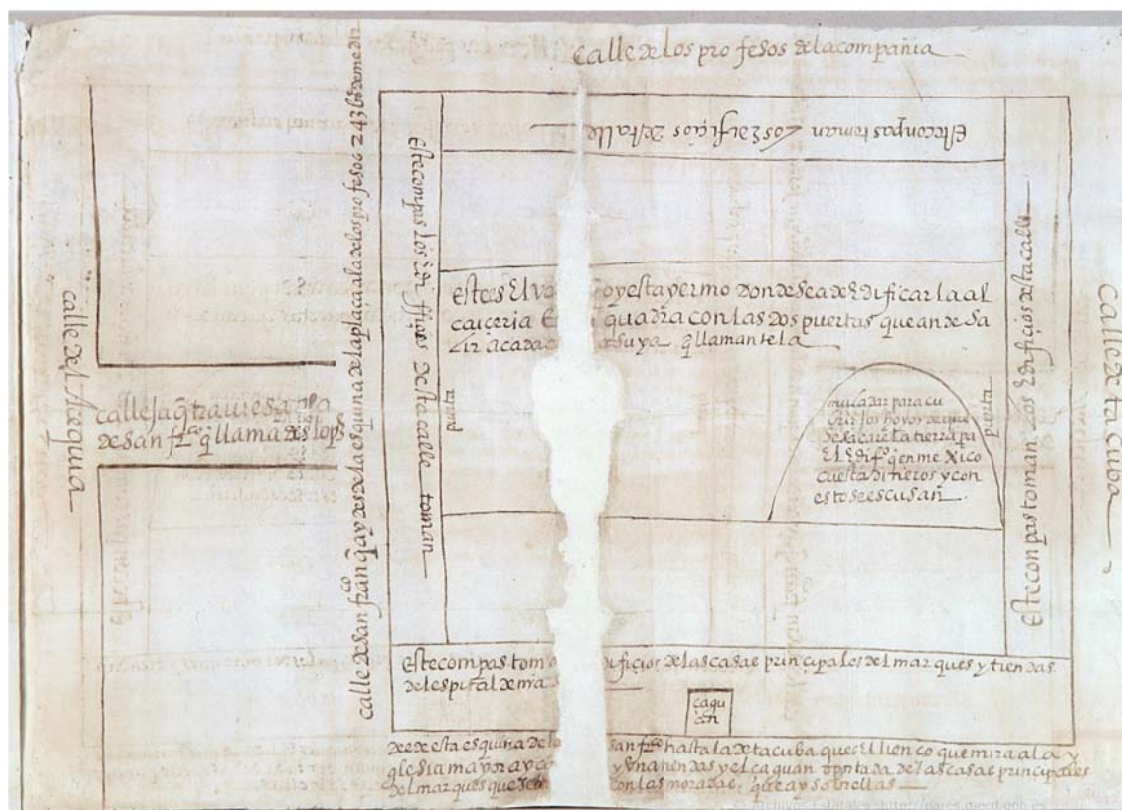 calle de los profesos de la compañia
este conpas toman los edifiçios desta calle
este compas los edifiçios desta calle toman
calle de san franco q̃ ay desde la esquina de la plaça a la de los profesos 243 bs de medir
calle del Açequia
calleja q̃ traviesa
de san franco q̃ llaman de
este es el va oy esta yermo donde se a de edificar la al
caiçeria quadra con las dos puertas que an de sa
lir a cada suya q̃ llaman tela
puerta
puerta
muladar para cu
brir los hoyos de que
se saca la tierra pa
el edifo q̃ en mexico
cuesta dineros y con
esto se escusan
este conpas toman los edifiçios desta calle
calle de tacuba
este compas tom difiçios de las casas principales del marques y tiendas
del espital de
çagu
an
desde esta esquina de san franco hasta la de tacuba ques el lienço que mira a la y
glesia mayor ay tiendas y el çaguan portada de las casas principales
del marques que con las moradas que ay sobrellas